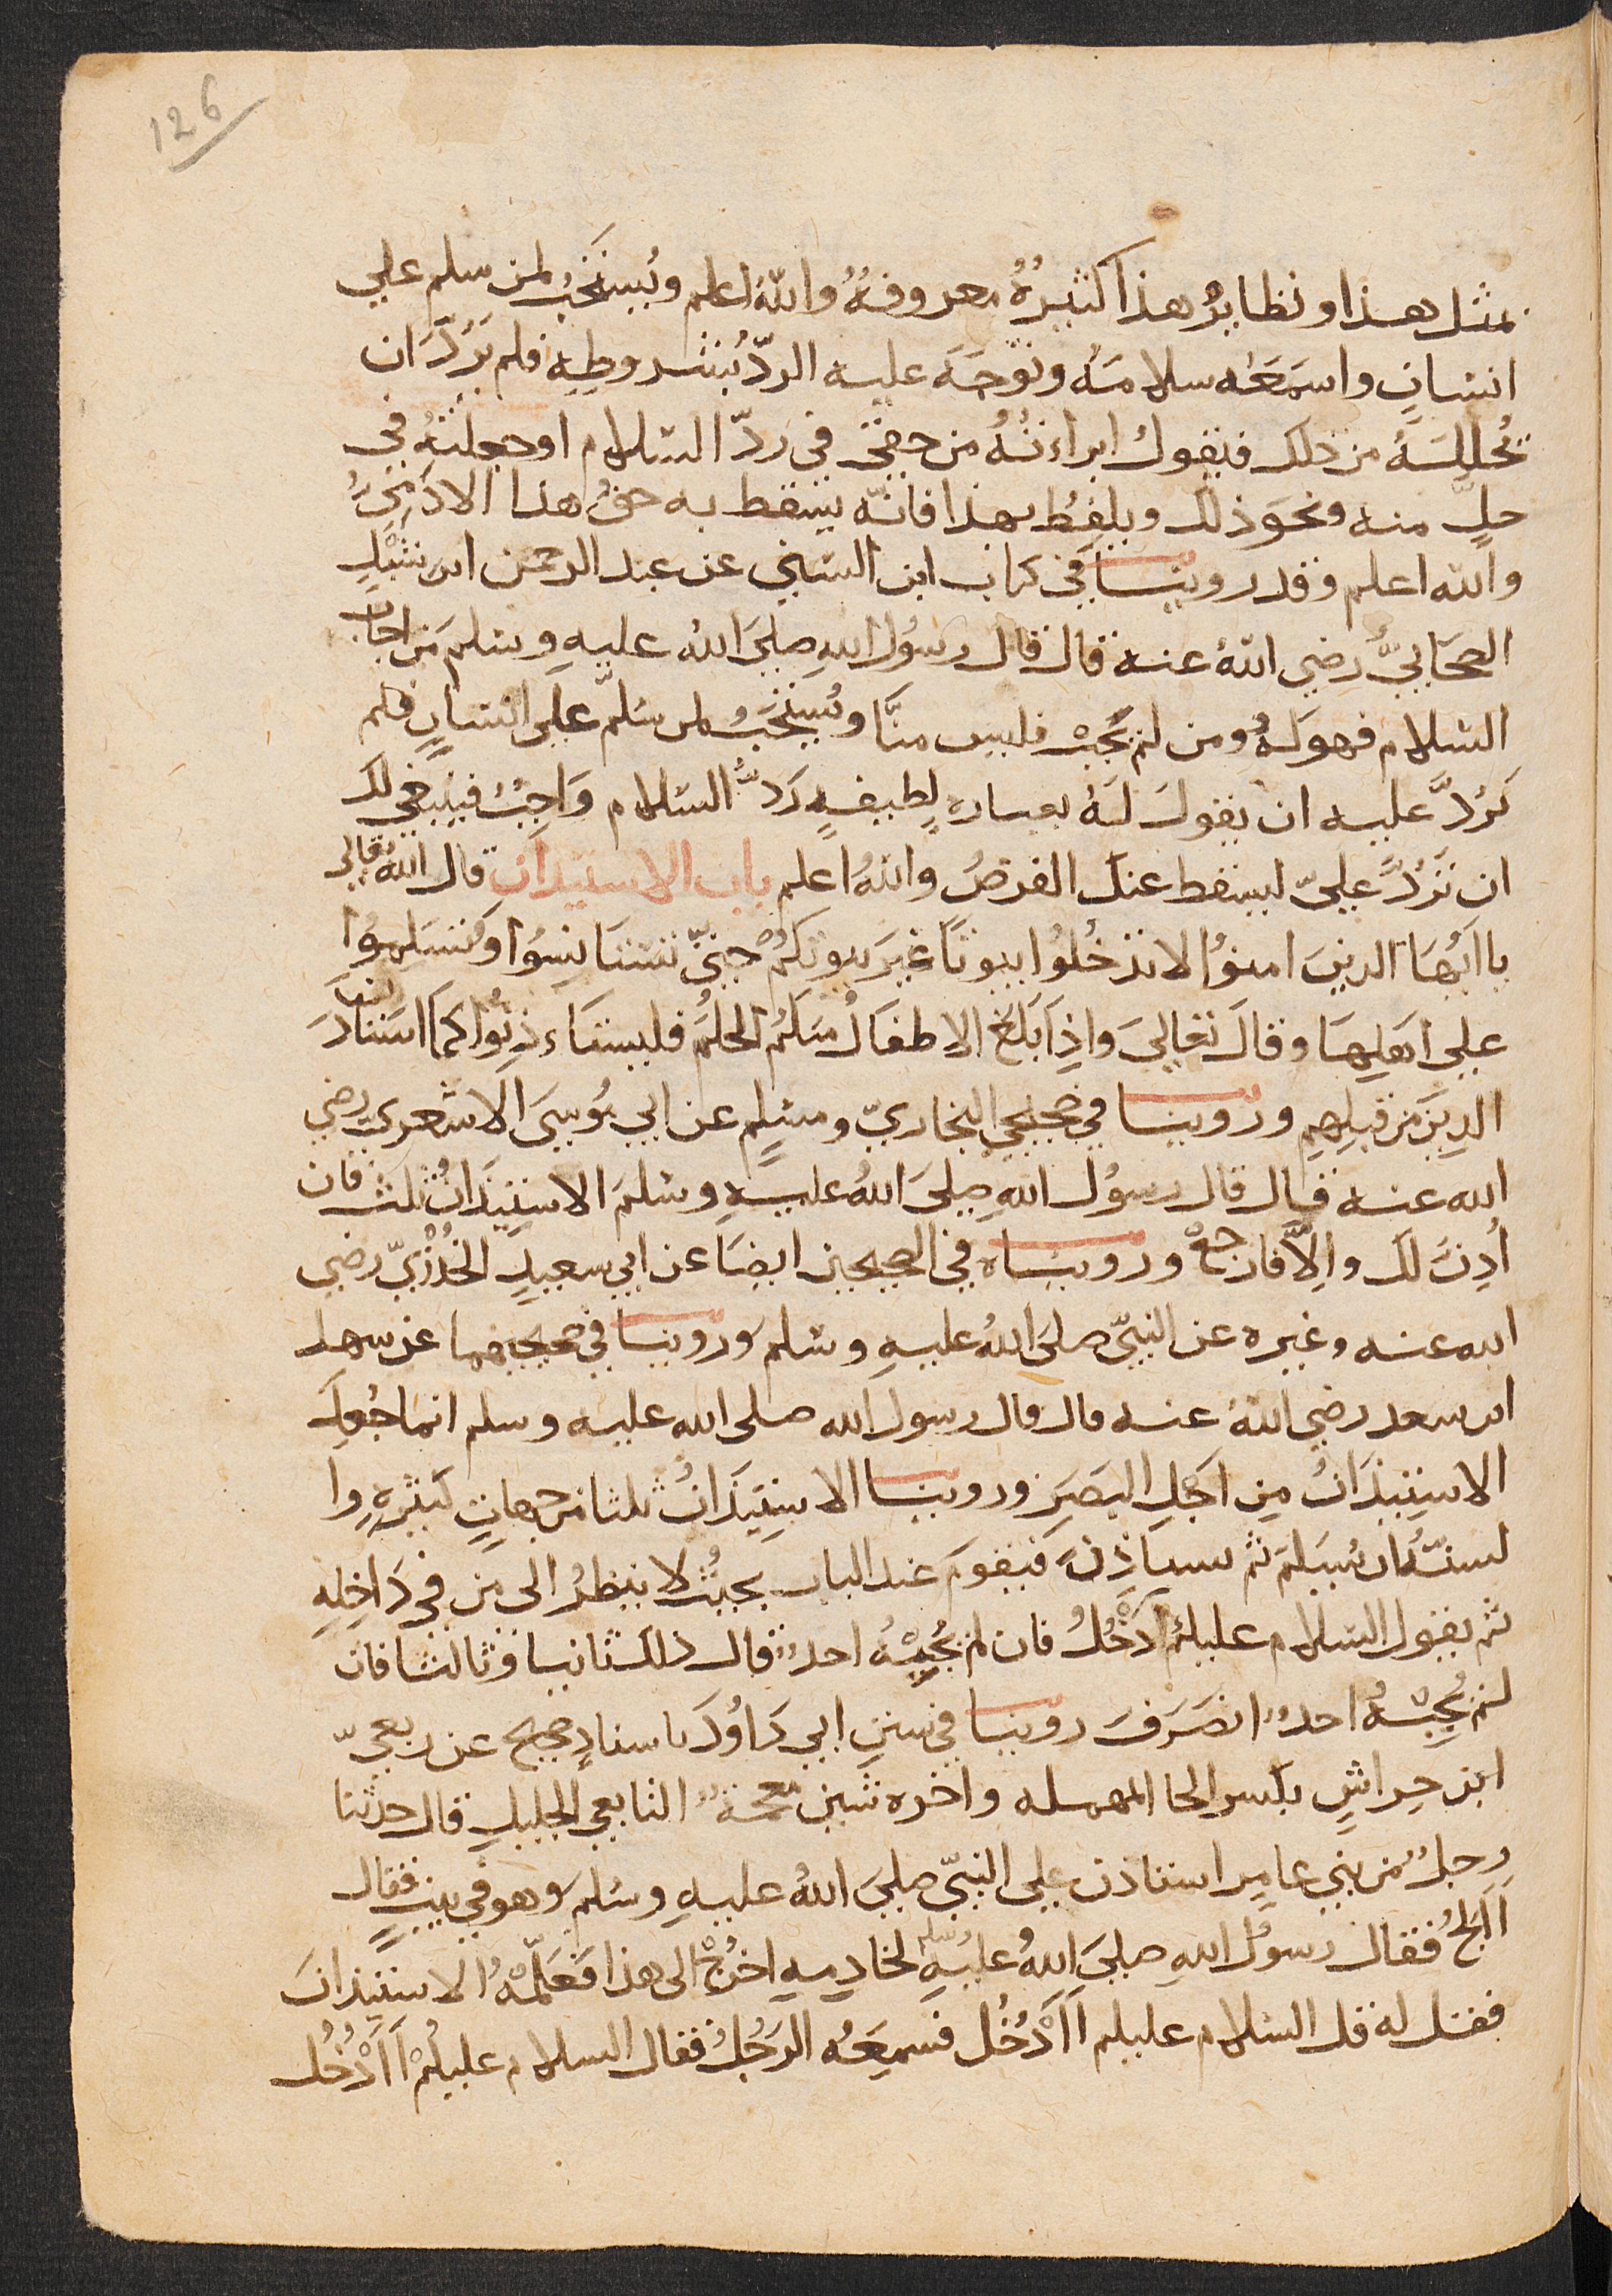 126
بمثل هذا ونظايرُ هذا كثيرةٌ معروفةٌ والله اعلم ويُستَحَبُّ لمن سلم علي
انسانٍ واسمَعَه سلامَهُ وتوجَّهَ عليه الردُّ بشروطِهِ فلم يَرُدَّ ان
يُحللَهُ من ذلك فيقولُ ابراءتُهُ من حقّي في ردّ السلام او جعلتُهُ في
حلٍّ منه ونحو ذلك ويلفظُ بهذا فانّه يسقط به حقُّ هذا الادَميّ
والله اعلم وقد روينا في كتاب ابن السني عن عبد الرحمن ابن شبْلٍ
الصحَابيُّ رضي اللهُ عنه قال قال رسُول اللهِ صليَ اللهُ عليهِ وسلم مَن اجابَ
السلام فهو لَهُ ومن لم يُجبْ فليس منَّا ويُستحَبُّ لمن سلمَّ علي انسانٍ فلم
يَرُدَّ عليه ان يقولَ لَهُ بعباره لطيفةٍ رَدُّ السّلام وَاجبٌ فينبغي لك
ان تَرُدَّ عليّ ليسقط عنك الفرضُ واللهُ اعلم باب الاستيذان قال اللهُ تعالي
يا ايُّهَا الذينَ امنوُا لا تدخُلُوا بيوتًا غيرَ بيوتِكمُ حتيّ تستَانِسُوا وتُسَلِموُا
علي اهَلِهَا وقالَ تعَاليَ واذِا بَلَغَ الاطفَالُ مِنكُمُ الحلُمَ فليستَاءذِنُوا كما استَاذَنَ
الذِينَ من قبلِهمِ وروينا في صحيحي البخاريّ ومسلمٍ عن ابي مُوسَى الاشعري رضي
الله عنه قال قال رسوُل اللهِ صليَ اللهُ عليهِ وسلمَ الاستيذَانُ ثلث فان
أُذِنَ لك والاّ فارجعْ ورويناه في الصحيحين ايضَا عن ابي سعيدٍ الخُدْرِيّ رضي
الله عنه وغيره عن النبيّ صلىَ اللهُ عليهِ وسلم وروينا في صحيحيهما عن سهل
ابن سعد رضي اللهُ عنه قال قال رسول الله صلى الله عليه وسلم انما جُعِلَ
الاستيذَانُ مِن اجَلِ البَصَرِ وروينا الاستِيذَانُ ثلثا من جهاتٍ كثيرةٍ وا
لسنّةُ ان يُسَلِمَ ثم يستاذنُ فيقومَ عند الباب بحيثُ لا ينظرُ الى من في دَاخِلِهِ
ثم يقول السلام عليكمُ أدَخُلُ فان لم يُجِبْهُ احدٌ قال ذلك ثانيا وثالثا فان
لم يُجِبْهُ احدٌ انصَرَفَ روينا في سننِ ابي دَاوُدَ باسنادٍ صحيح عن ربعيّ
ابن حِراشٍ بكسر الحا المهمله واخره شين معجمةٌ التابعي الجليلِ قال حدثنا
رجلٌ من بني عامِرٍ استاذن علي النبيّ صليَ اللهُ عليهِ وسلم وهو في بيتٍ فقال
ااَلجُ فقال رسوُل اللهِ صليَ اللهُ عليهِ وسلم لخادِمِهِ اخرُجْ الى هذا فَعَلّمْهُ الاستيذانَ
فقل له قل السلام عليكم ااَدْخُل فسمِعَه الرَجُلُ فقال السلام عليكُمْ ااَدْخُل